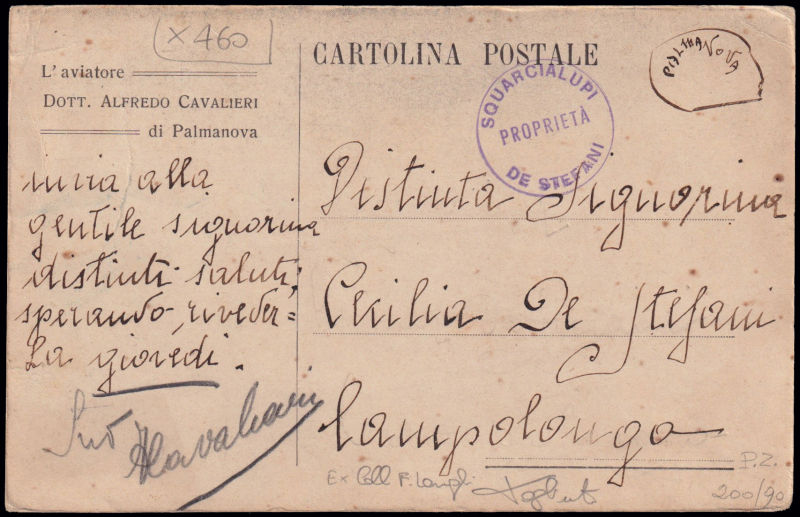 x 460
L'aviatore
DOTT. ALFREDO CAVALIERI
di Palmanova
invia alla
gentile signorina
distinti saluti,
sperando river=
la giovedì.
Suo
ACavalieri
CARTOLINA POSTALE
SQUARCIALUPI
PROPRIETÀ
DE STEFANI
PALMANOVA
Distinta Signorina
Cecilia De Stefani
Campolongo
P.Z.
Ex Coll F.
200/90